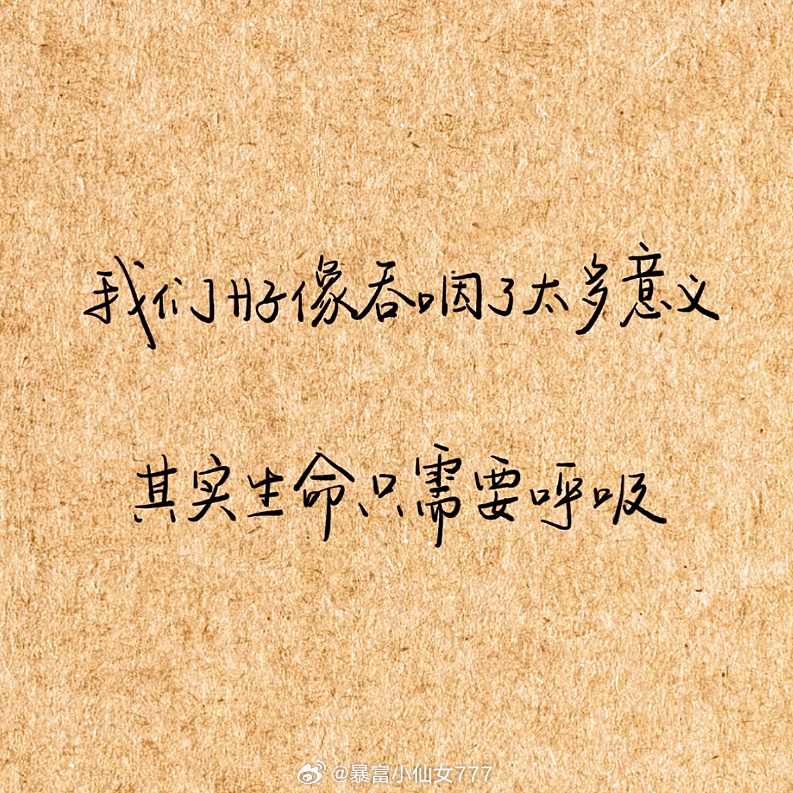 我们好像吞咽了太多意义
其实生命只需要呼吸
@暴富小仙女777